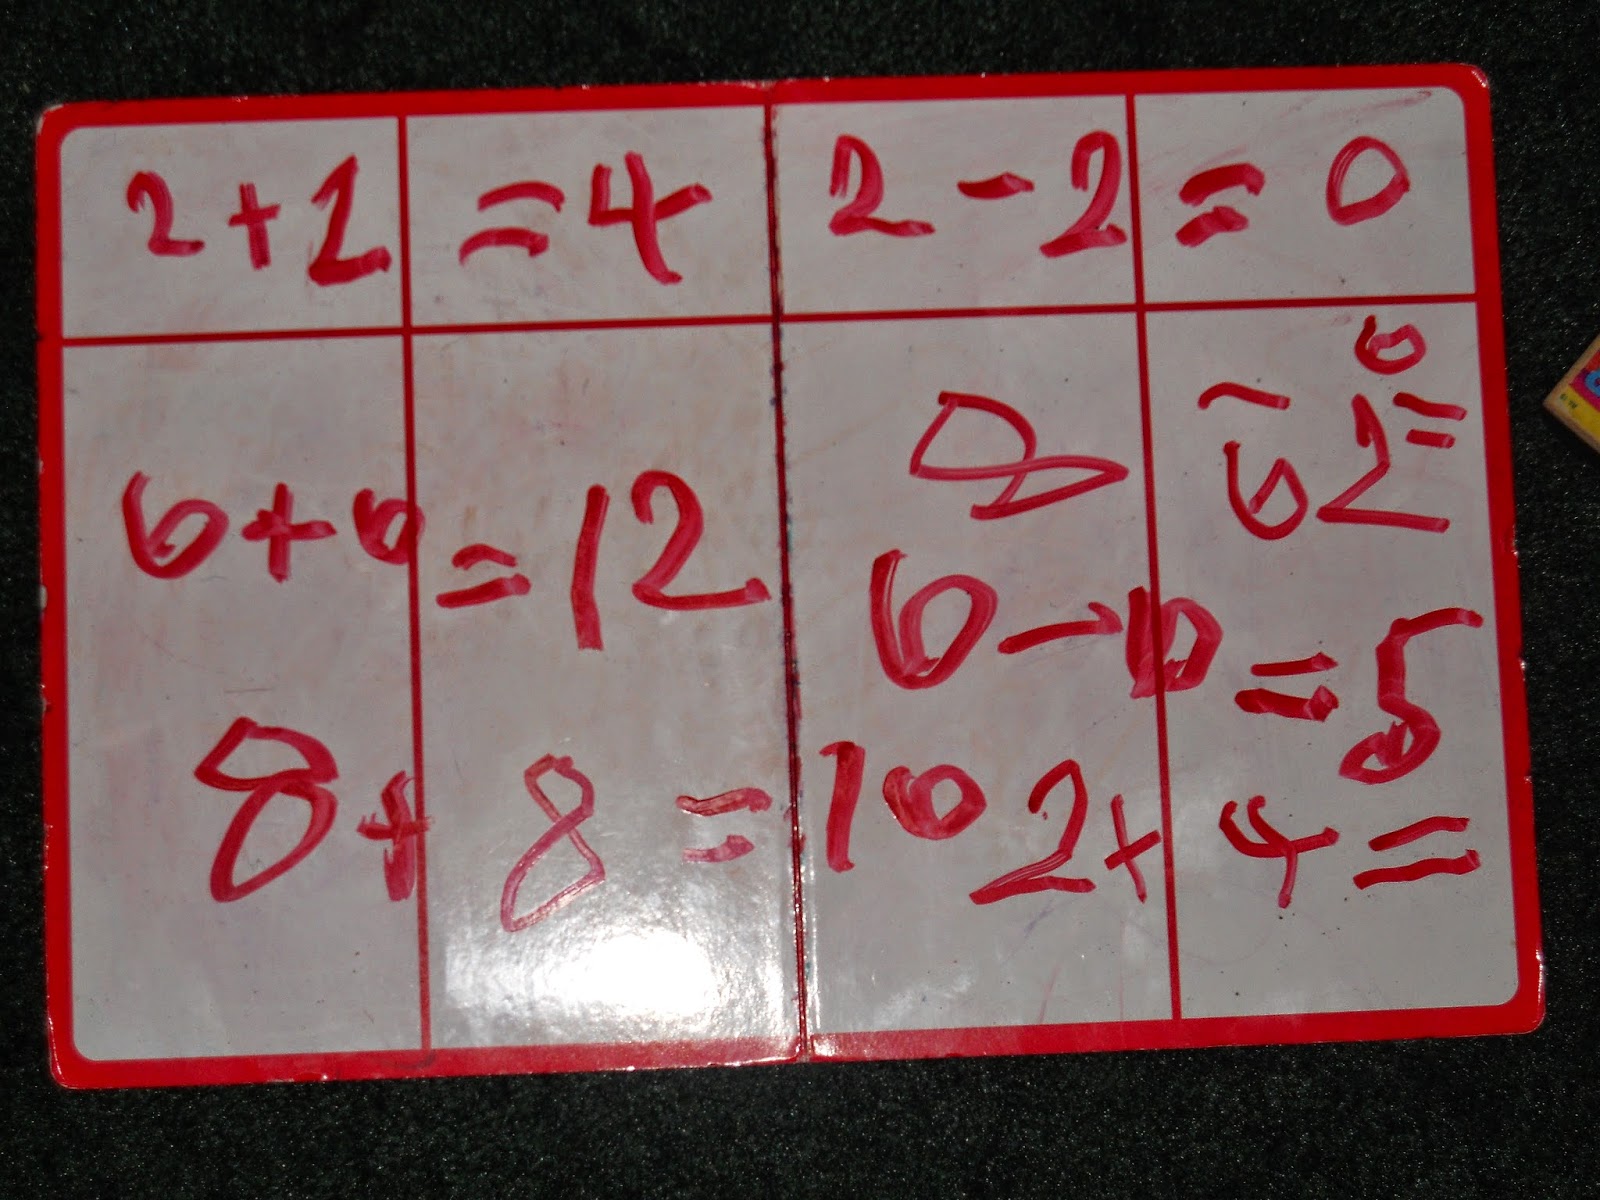 2+2 =4 2-2 = 0
8 - 6 2 =
6+6 = 12 6-6 = 5
8+8 = 10 2+4=